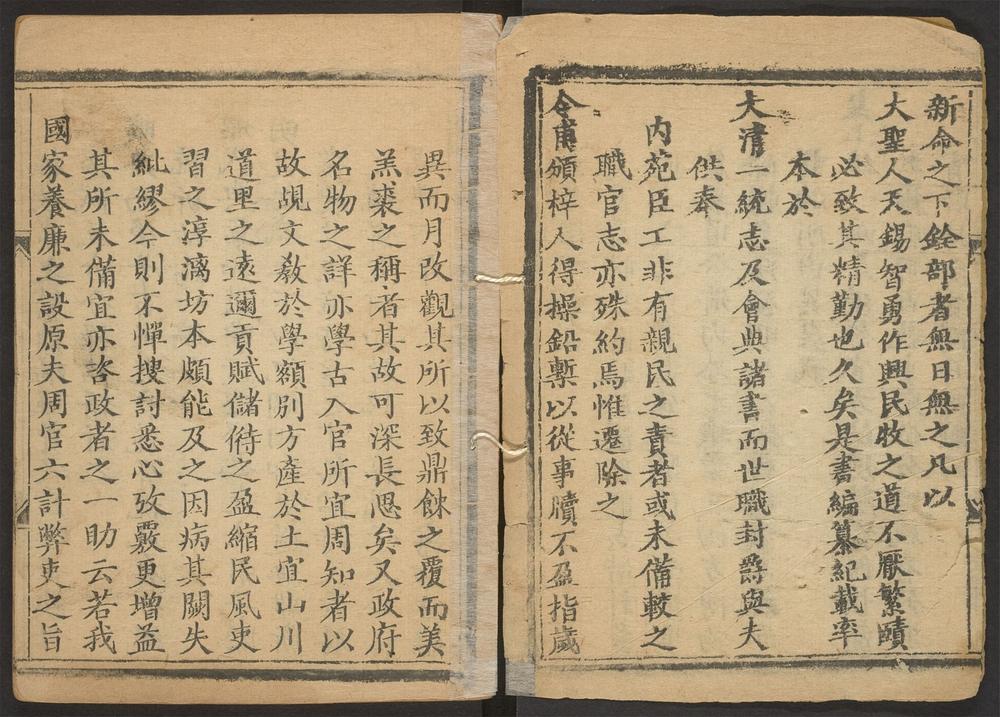 新命之下銓部者無日無之凡以
大聖人天錫智勇作興民牧之道不厭繁賾
必致其精勤也久矣是書編纂紀載率
本於
大清一統志及會典諸書而世職封爵與夫
供奉
內苑臣工非有親民之責者或未備較之
職官志亦殊約焉惟遷除之
令甫頒梓人得操鉛槧以從事牘不盈指歲
異而月改觀其所以致鼎餗之覆而美
羔裘之稱者其故可深長思矣又政府
名物之詳亦學古入官所宜周知者以
故覘文敎於學額別方產於土宜山川
道里之遠邇貢賦儲偫之盈縮民風吏
習之淳漓坊本頗能及之因病其闕失
紕繆今則不憚搜討悉心攷覈更增益
其所未備宜亦咨政者之一助云若我
國家養廉之設原夫周官六計弊吏之旨